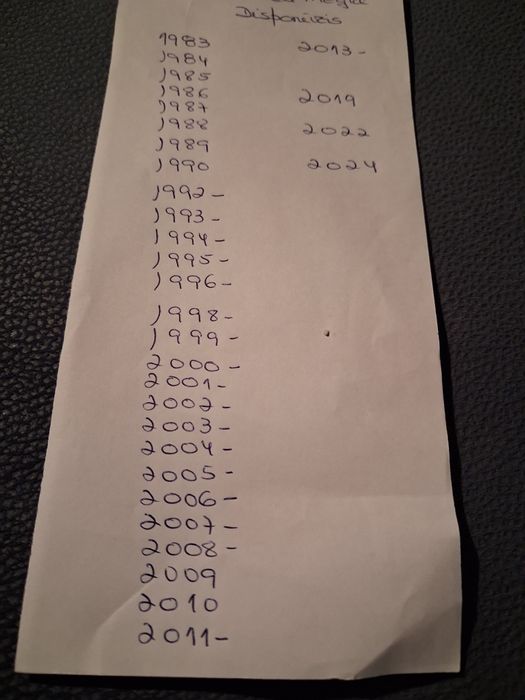 Disponíveis
1983
1984
1985
1986
1987
1988
1989
1990
1992-
1993-
1994-
1995-
1996-
1998-
1999-
2000-
2001-
2002-
2003-
2004-
2005-
2006-
2007-
2008-
2009
2010
2011-
2013-
2019
2022
2024